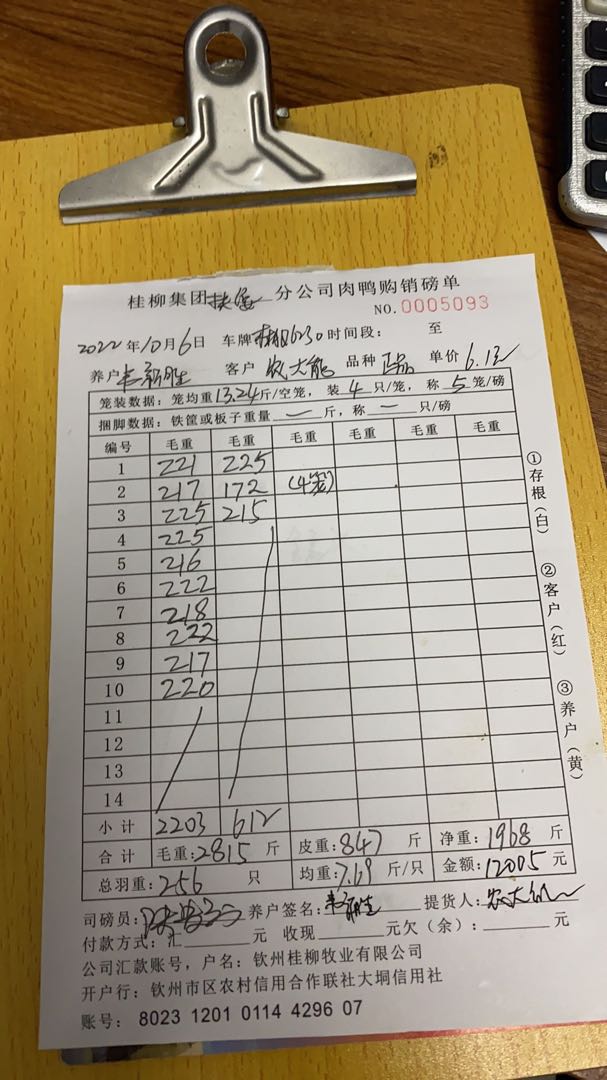 桂柳集团 分公司肉鸭购销磅单
NO.0005093
2022年10月6日 车牌 时间段: 至
养户 客户 农大能 品种 单价 6.1
笼装数据:笼均重13.24斤/空笼,装4只/笼,称5笼/磅
捆脚数据:铁筐或板子重量 一 斤,称 一 只/磅
编号 毛重 毛重 毛重 毛重 毛重 毛重
1 221 225
2 217 172 (4笼)
3 225 215
4 225
5 216
6 222
7 218
8 222
9 217
10 220
11
12
13
14
小计 2203 612
合计 毛重:2815斤 皮重:847斤 净重:1968斤
总羽重:256只 均重:7.69斤/只 金额:12005元
司磅员: 养户签名: 提货人:农大能
付款方式:汇 元 收现 元欠(余): 元
公司汇款账号,户名:钦州桂柳牧业有限公司
开户行:钦州市区农村信用合作联社大垌信用社
账号: 8023 1201 0114 4296 07
①存根(白)
②客户(红)
③养户(黄)